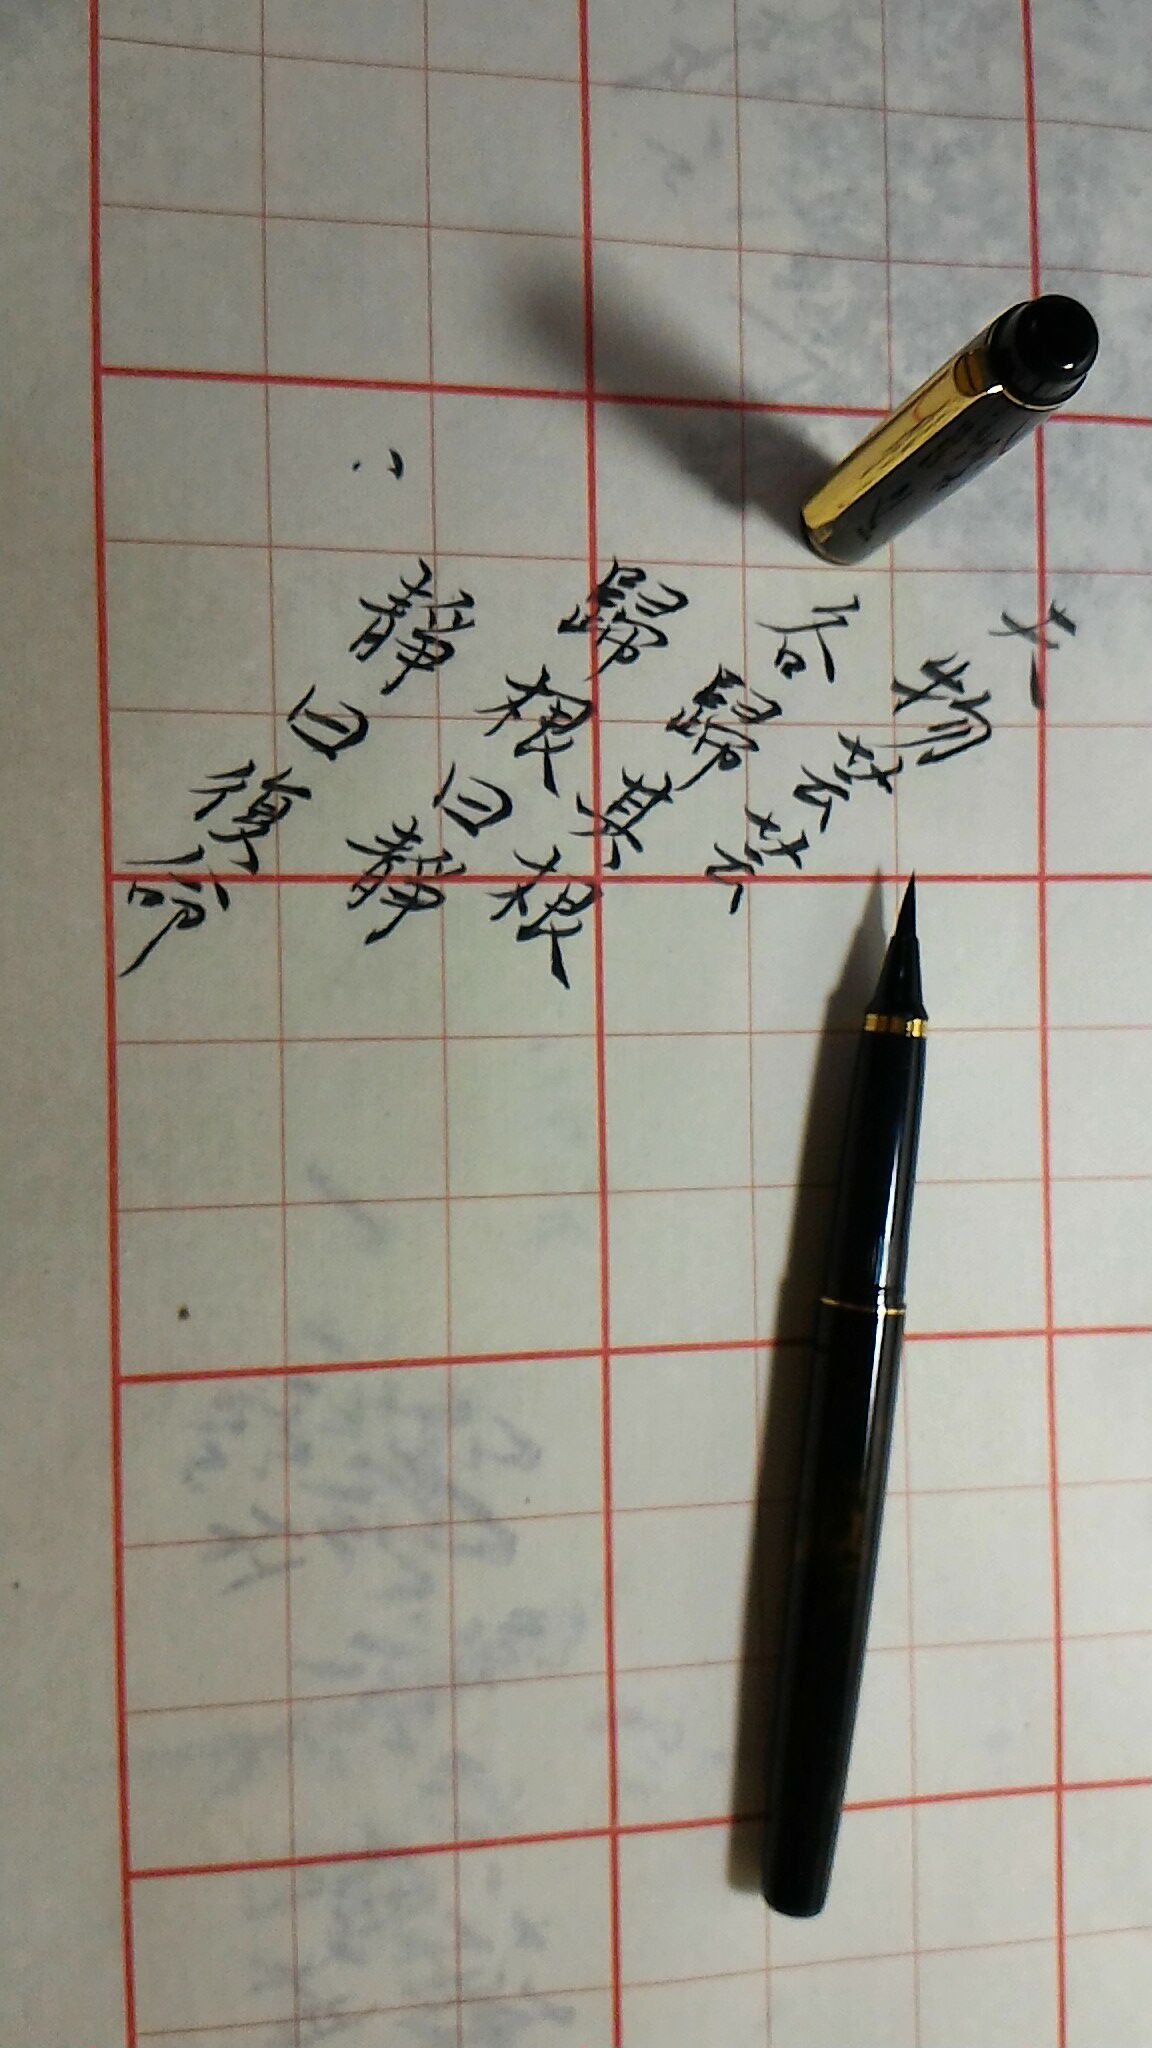 夫物芸芸
各歸其根
歸根曰靜
靜曰復命